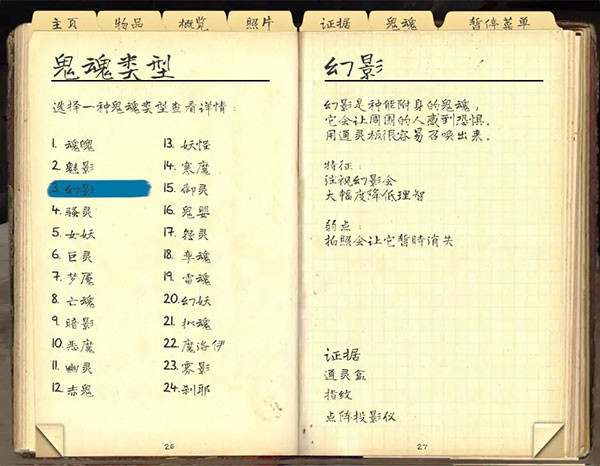 主页 物品 概览 照片 证据 鬼魂 暂停菜单
鬼魂类型
选择一种鬼魂类型查看详情：
1. 魂魄
2. 魅影
3. 幻影
4. 骚灵
5. 女妖
6. 巨灵
7. 梦魇
8. 亡魂
9. 暗影
10. 恶魔
11. 幽灵
12. 赤鬼
13. 妖怪
14. 寒魔
15. 御灵
16. 鬼婴
17. 怨灵
18. 孪魂
19. 雷魂
20. 幻妖
21. 拟魂
22. 魔洛伊
23. 雾影
24. 刹耶
26
幻影
幻影是种能附身的鬼魂，
它会让周围的人感到恐惧。
用通灵板很容易召唤出来。
特征：
注视幻影会
大幅度降低理智
弱点：
拍照会让它暂时消失
证据
通灵盒
指纹
点阵投影仪
27